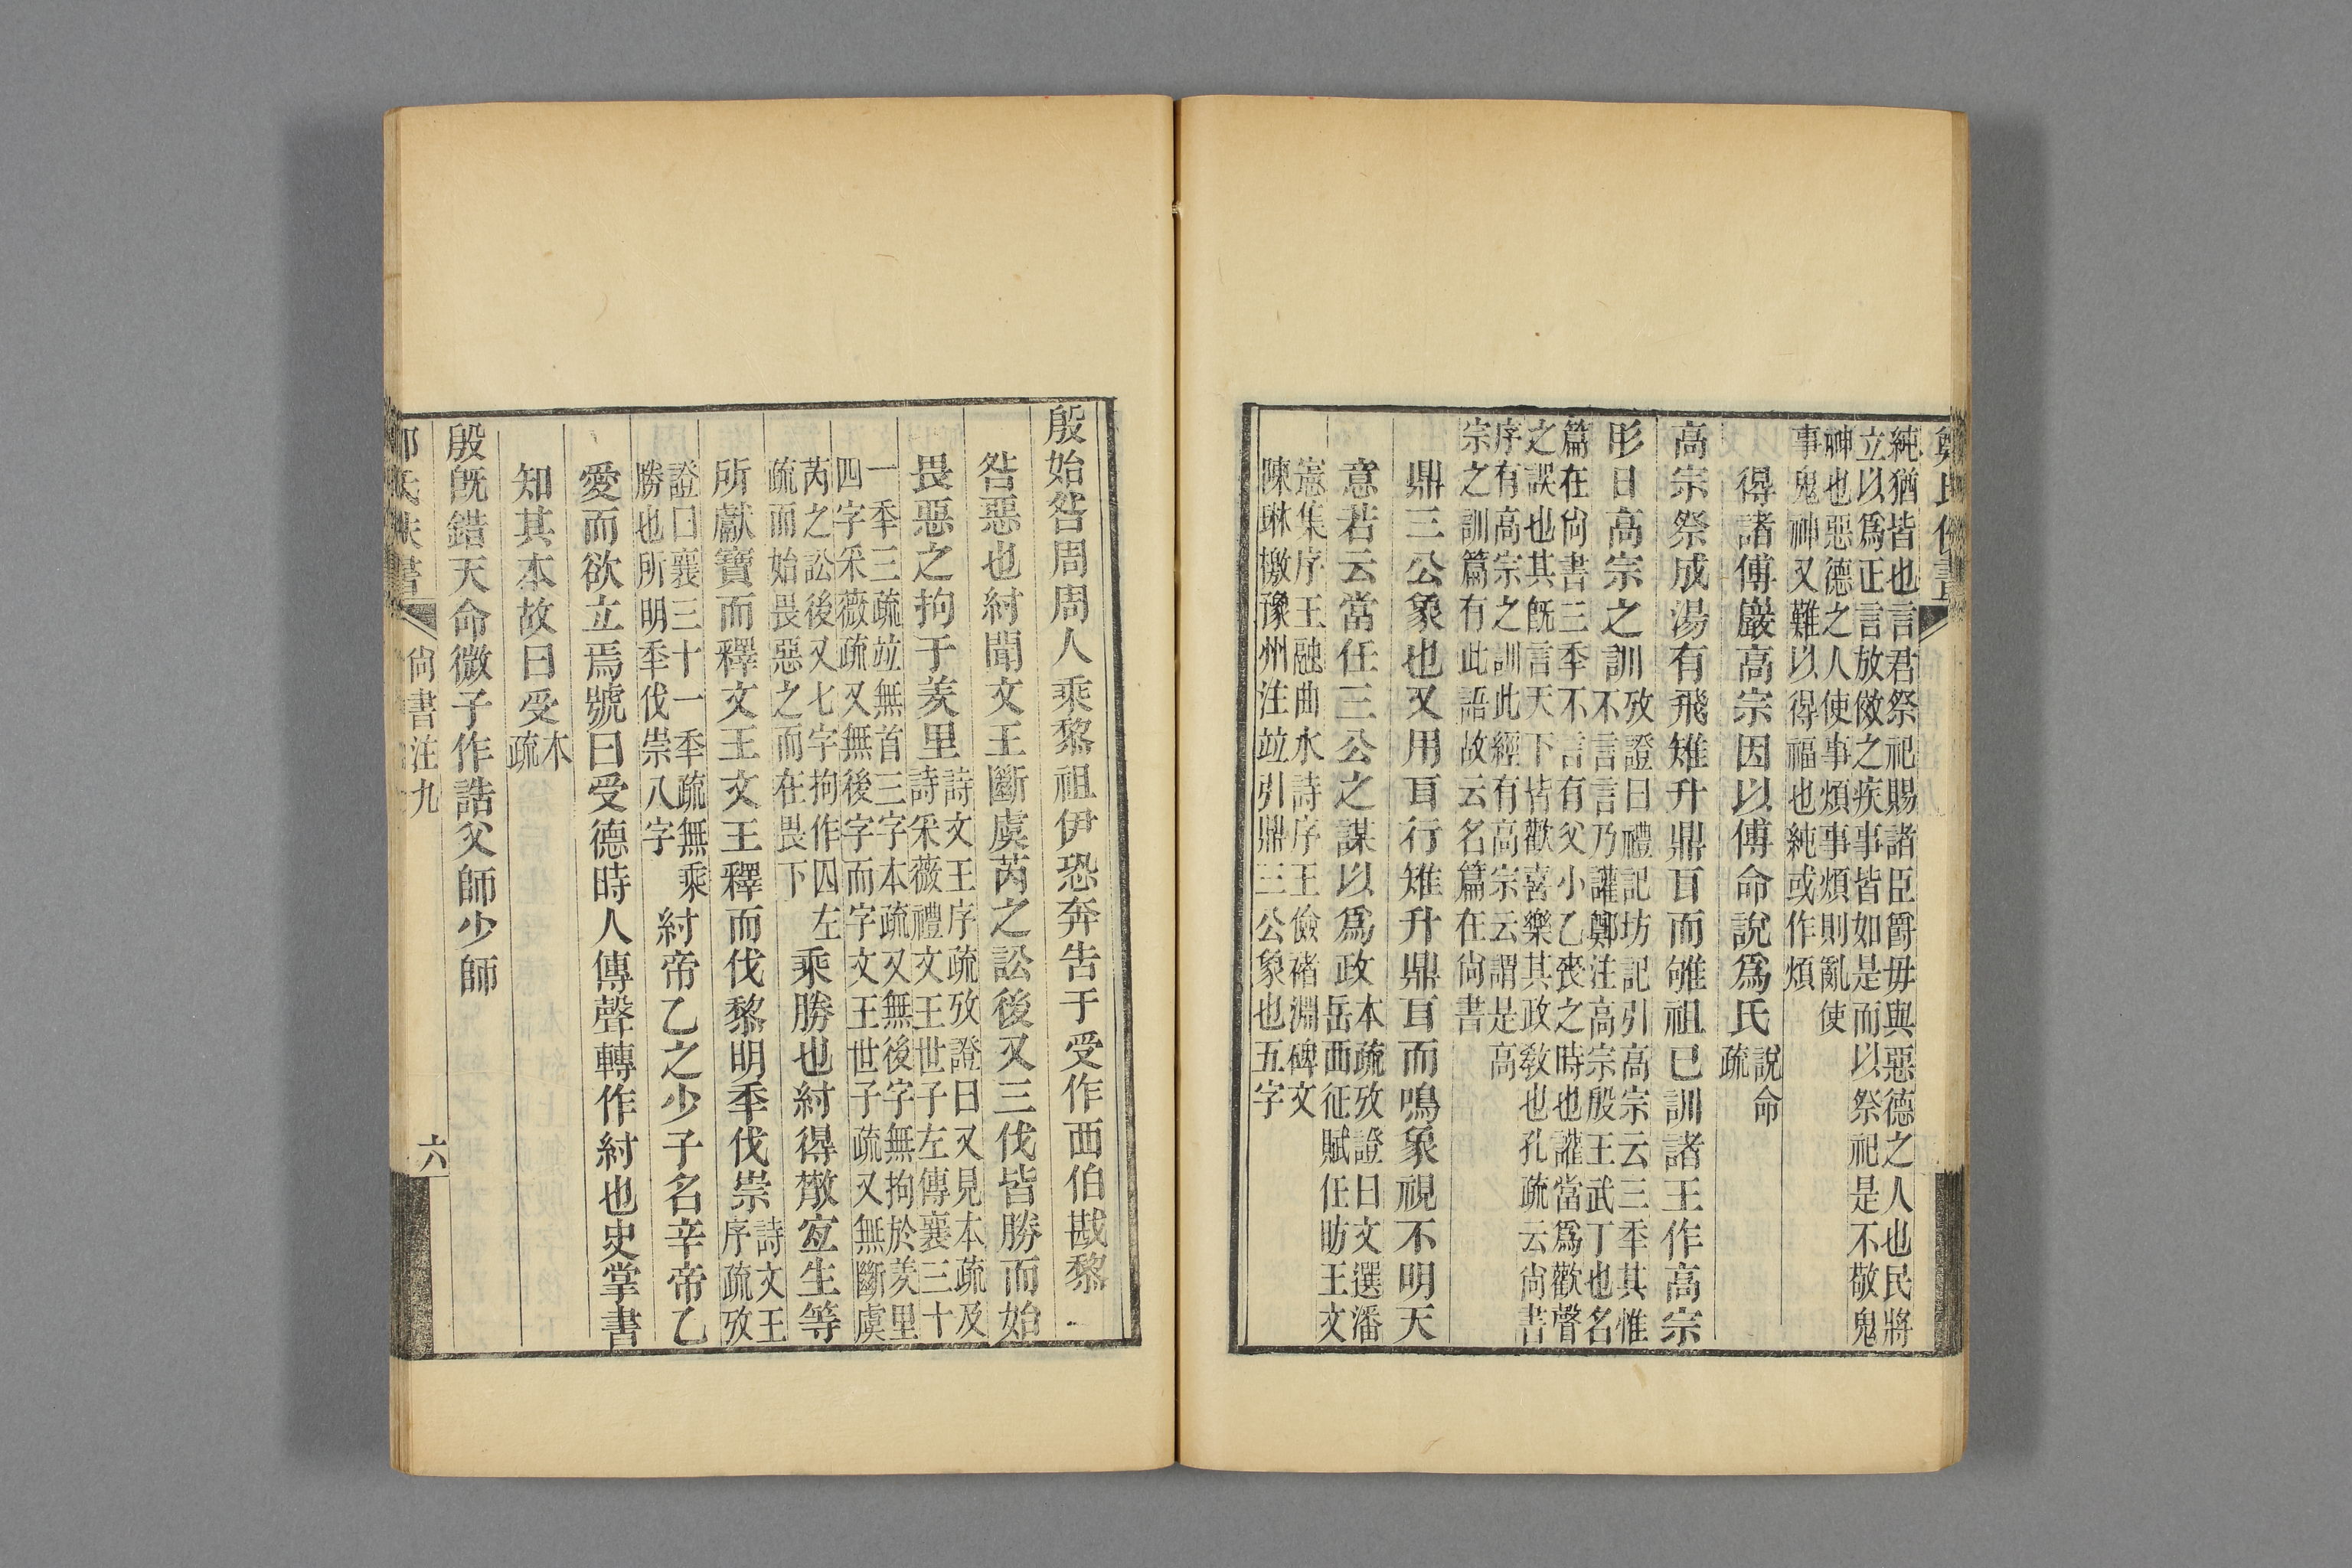 純猶皆也言君祭祀賜諸臣爵毋與惡德之人也民將
立以爲正言放傚之疾事皆如是而以祭祀是不敬鬼
神也惡德之人使事煩事煩則亂使
事鬼神又難以得福也純或作煩
得諸傅巖高宗因以傅命說爲氏說命
疏
高宗祭成湯有飛雉升鼎耳而雊祖己訓諸王作高宗
肜日高宗之訓攷證曰禮記坊記引高宗云三秊其惟
不言言乃讙鄭注高宗殷王武丁也名
篇在尙書三秊不言有父小乙喪之時也讙當爲歡聲
之誤也其旣言天下皆歡喜樂其政敎也孔疏云尙書
序有高宗之訓此經有高宗云謂是高
宗之訓篇有此語故云名篇在尙書
鼎三公象也又用耳行雉升鼎耳而鳴象視不明天
意若云當任三公之謀以爲政本疏攷證曰文選潘
岳西征賦任昉王文
憲集序王融曲水詩序王儉褚淵碑文
陳琳檄豫州注竝引鼎三公象也五字
殷始咎周周人乘黎祖伊恐奔告于受作西伯戡黎
咎惡也紂聞文王斷虞芮之訟後又三伐皆勝而始
畏惡之拘于羑里詩文王序疏攷證曰又見本疏及
詩采薇禮文王世子左傳襄三十
一秊三疏竝無首三字本疏又無後字無拘於羑里
四字采薇疏又無後字而字文王世子疏又無斷虞
芮之訟後又七字拘作囚左
疏而始畏惡之而在畏下
乘勝也紂得散宜生等
所獻寶而釋文王文王釋而伐黎明秊伐崇詩文王
序疏攷
證曰襄三十一秊疏無乘
勝也所明秊伐崇八字
紂帝乙之少子名辛帝乙
愛而欲立焉號曰受德時人傳聲轉作紂也史掌書
知其本故曰受本
疏
殷旣錯天命微子作誥父師少師
尙書注九
六